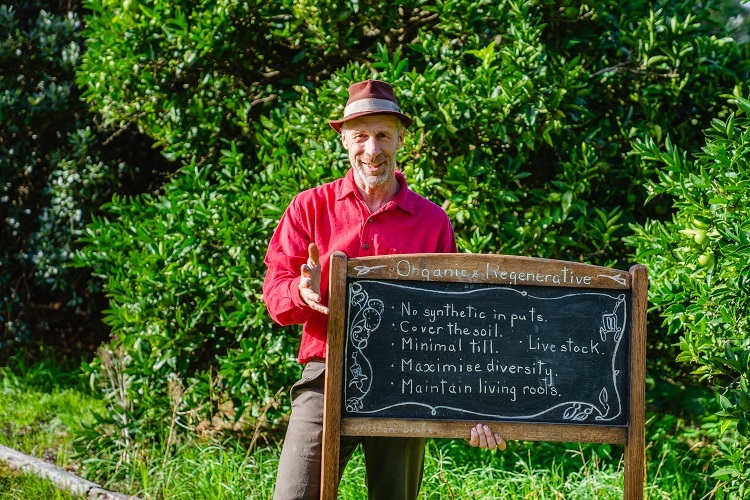 Organic & Regenerative
· No synthetic inputs.
· Cover the soil.
· Minimal till. · Live stock.
· Maximise diversity.
· Maintain living roots.